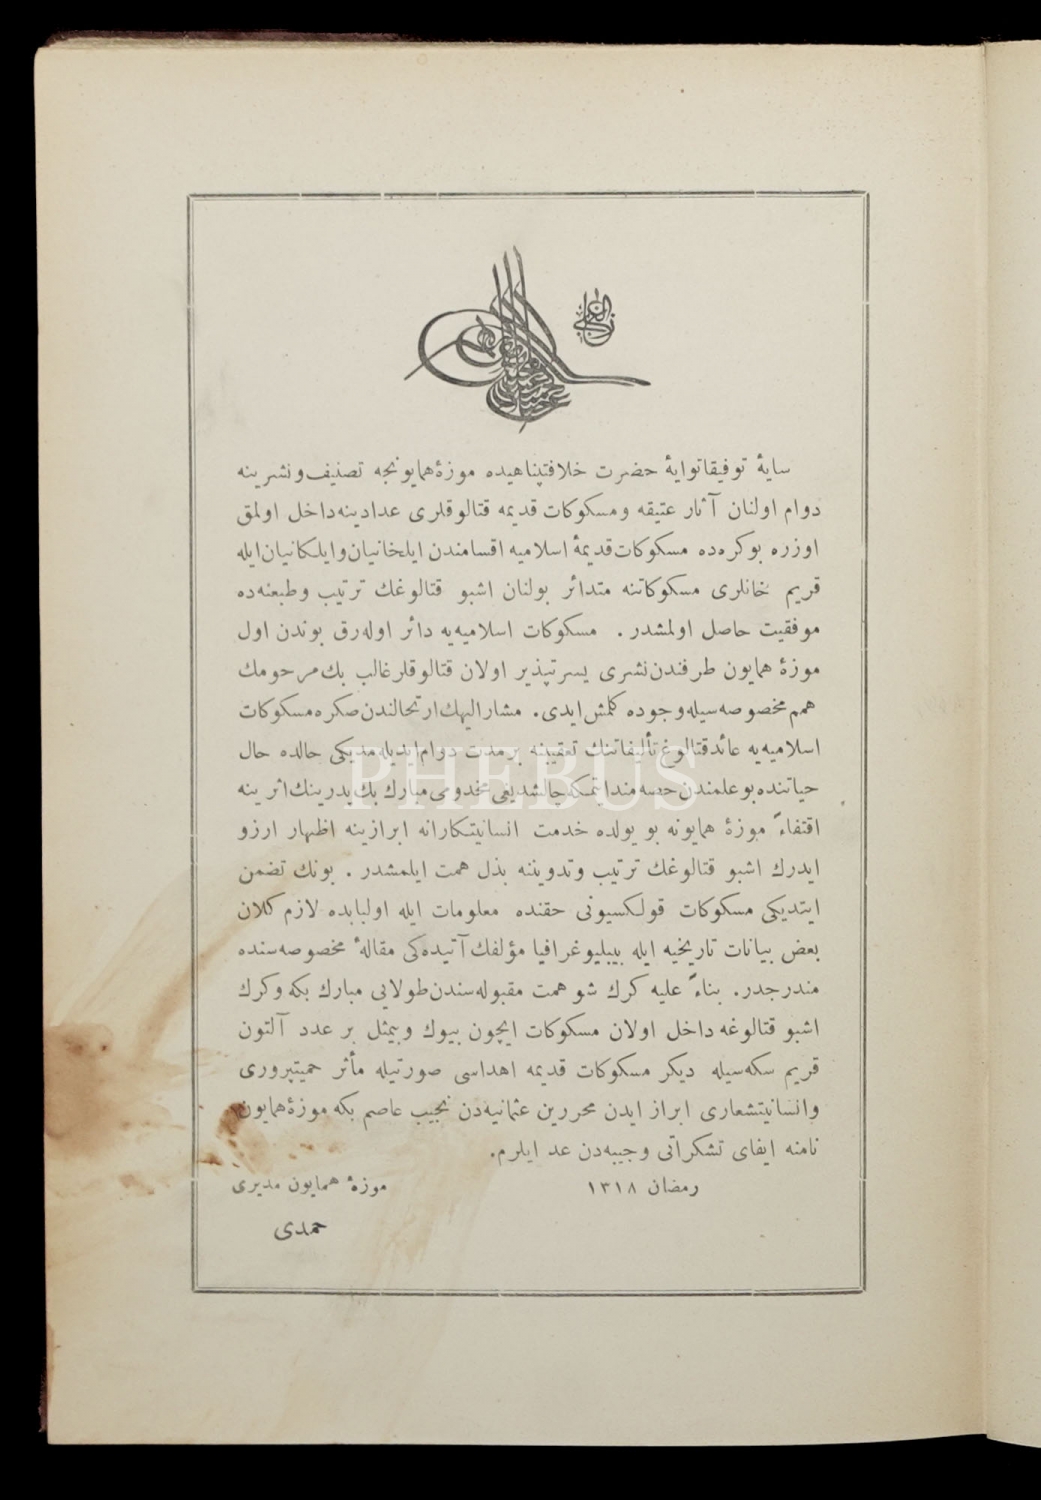 الغازی
سایهٔ توفیقاتوایهٔ حضرت خلافتپناهیده موزهٔ همایونجه تصنیف و نشرینه
دوام اولنان آثار عتیقه ومسکوکات قدیمه قتالوقلری عدادینه داخل اولمق
اوزره بوکره ده مسکوکات قدیمهٔ اسلامیه اقسامندن ایلخانیان وایلکانیان ایله
قریم خانلری مسکوکاتنه متدائر بولنان اشبو قتالوغك ترتیب وطبعنه ده
موفقیت حاصل اولمشدر . مسکوکات اسلامیه یه دائر اوله رق بوندن اول
موزهٔ همایون طرفندن نشری یسرتپذیر اولان قتالوقلر غالب بك مرحومك
همم مخصوصه سیله وجوده کلمش ایدی. مشار الیهك ارتحالندن صکره مسکوکات
اسلامیه یه عائد قتالوغ تألیفاتنك تعقیبنه بر مدت دوام ایدیله مدیکی حالده حال
حیاتنده بو علمندن حصه مند ایتمکه چالشدیغی مخدومی مبارك بك پدرینك اثرینه
اقتفاءً موزهٔ همایونه بو یولده خدمت انسانیتکارانه ابرازینه اظهار ارزو
ایدرك اشبو قتالوغك ترتیب وتدویننه بذل همت ایلمشدر . بونك تضمن
ایتدیکی مسکوکات قولکسیونی حقنده معلومات ایله اولبابده لازم کلان
بعض بیانات تاریخیه ایله بیبلیوغرافیا مؤلفك آتیده کی مقالهٔ مخصوصه سنده
مندرجدر. بناءً علیه کرك شو همت مقبوله سندن طولایی مبارك بکه وکرك
اشبو قتالوغه داخل اولان مسکوکات ایچون بیوك وبیمثل بر عدد آلتون
قریم سکه سیله دیکر مسکوکات قدیمه اهداسی صورتیله مآثر حمیتپروری
وانسانیتشعاری ابراز ایدن محررین عثمانیه دن نجیب عاصم بکه موزهٔ همایون
نامنه ایفای تشکراتی وجیبه دن عد ایلرم.
رمضان ١٣١٨ موزهٔ همایون مدیری
حمدی
PHEBUS